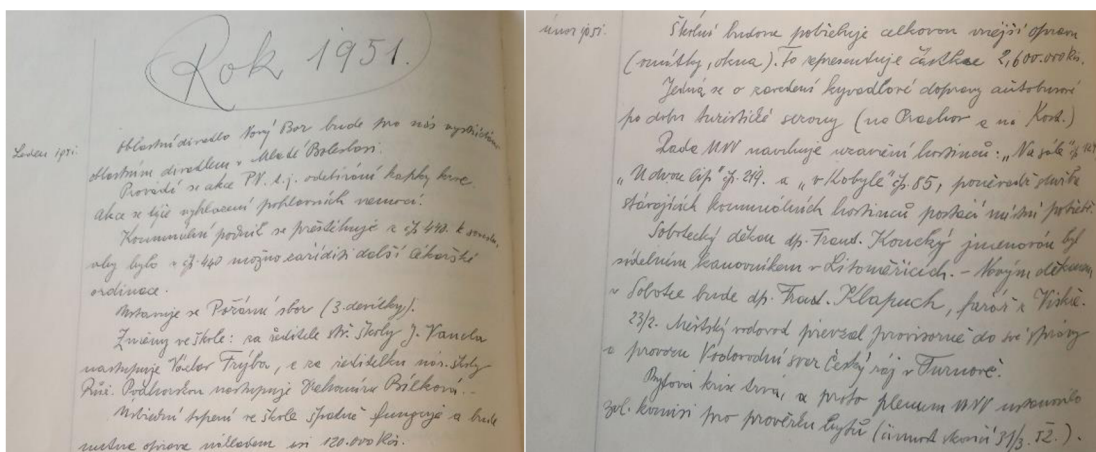 Rok 1951.
Leden 1951.
Oblastní divadlo Nový Bor bude pro nás vystřídáno
oblastním divadlem v Mladé Boleslavi.
Provádí se akce PV. t.j. odebírání kapky krve.
Akce se týče vyhlazení pohlavních nemocí.
Komunální podnik se přestěhuje z čp. 440. k
aby bylo v čp. 440 možno zaříditi další lékařské
ordinace.
Ustavuje se Požární sbor (3. desítky).
Změny ve škole: za ředitele stř. školy J. Vanela
nastupuje Václav Frýba, a za ředitelku nár. školy
Růž. Podhorskou nastupuje Drahomíra Bílková.
Ústřední topení ve škole špatně funguje a bude
nutna oprava nákladem asi 120.000 Kčs.
únor 1951.
Školní budova potřebuje celkovou vnější opravu
(omítky, okna). To representuje částku 2,600.000 Kčs.
Jedná se o zavedení kyvadlové dopravy autobusové
po dobu turistické sezony (na Prachov a na Kost.)
Rada MNV navrhuje uzavření hostinců: „Na
„U dvou lip" čp. 219. a „v Kobylé" čp. 85, poněvadž služba
stávajících komunálních hostinců postačí místní potřebě.
Sobotecký děkan dp. Frant. Koucký jmenován byl
sídelním kanovníkem v Litoměřicích. - Novým děkanem
v Sobotce bude dp. Frant. Klapuch, farář z
23/2. Městský vodovod převzal provisorně do své správy
a provozu Vodovodní svaz Český ráj v Turnově.
Bytová krise trvá, a proto plenum MNV ustanovilo
zvl. komisi pro prověrku bytů (činnost skončí 31/3. 52.).